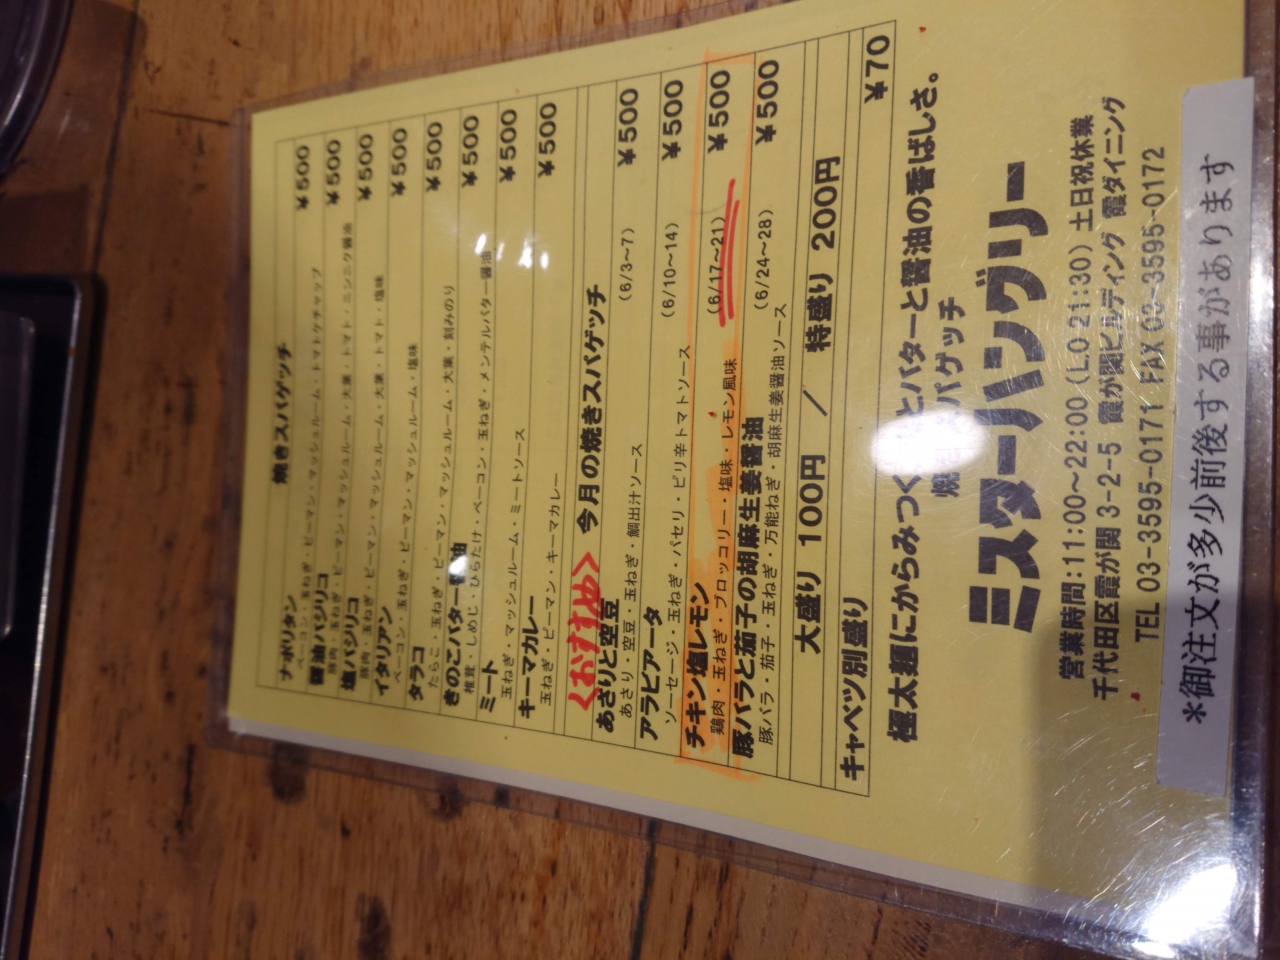 焼きスパゲッチ
ナポリタン ¥500
ベーコン・玉ねぎ・ピーマン・マッシュルーム・トマトケチャップ
醤油バジリコ ¥500
豚肉・玉ねぎ・ピーマン・マッシュルーム・大葉・トマト・ニンニク醤油
塩バジリコ ¥500
豚肉・玉ねぎ・ピーマン・マッシュルーム・大葉・トマト・塩味
イタリアン ¥500
ベーコン・玉ねぎ・ピーマン・マッシュルーム・塩味
タラコ ¥500
たらこ・玉ねぎ・ピーマン・マッシュルーム・大葉・刻みのり
きのこバター醤油 ¥500
椎茸・しめじ・ひらたけ・ベーコン・玉ねぎ・メンテルバター醤油
ミート ¥500
玉ねぎ・マッシュルーム・ミートソース
キーマカレー ¥500
玉ねぎ・ピーマン・キーマカレー
<おすすめ> 今月の焼きスパゲッチ
あさりと空豆 (6/3~7) ¥500
あさり・空豆・玉ねぎ・鯛出汁ソース
アラビアータ (6/10~14) ¥500
ソーセージ・玉ねぎ・パセリ・ピリ辛トマトソース
チキン塩レモン (6/17~21) ¥500
鶏肉・玉ねぎ・ブロッコリー・塩味・レモン風味
豚バラと茄子の胡麻生姜醤油 (6/24~28) ¥500
豚バラ・茄子・玉ねぎ・万能ねぎ・胡麻生姜醤油ソース
大盛り 100円 / 特盛り 200円
キャベツ別盛り ¥70
極太麺にからみつくとバターと醤油の香ばしさ。
焼スパゲッチ
ミスターハングリー
営業時間:11:00~22:00 (LO 21:30) 土日祝休業
千代田区霞が関 3-2-5 霞が関ビルディング 霞ダイニング
TEL 03-3595-0171 FAX 03-3595-0172
*御注文が多少前後する事があります